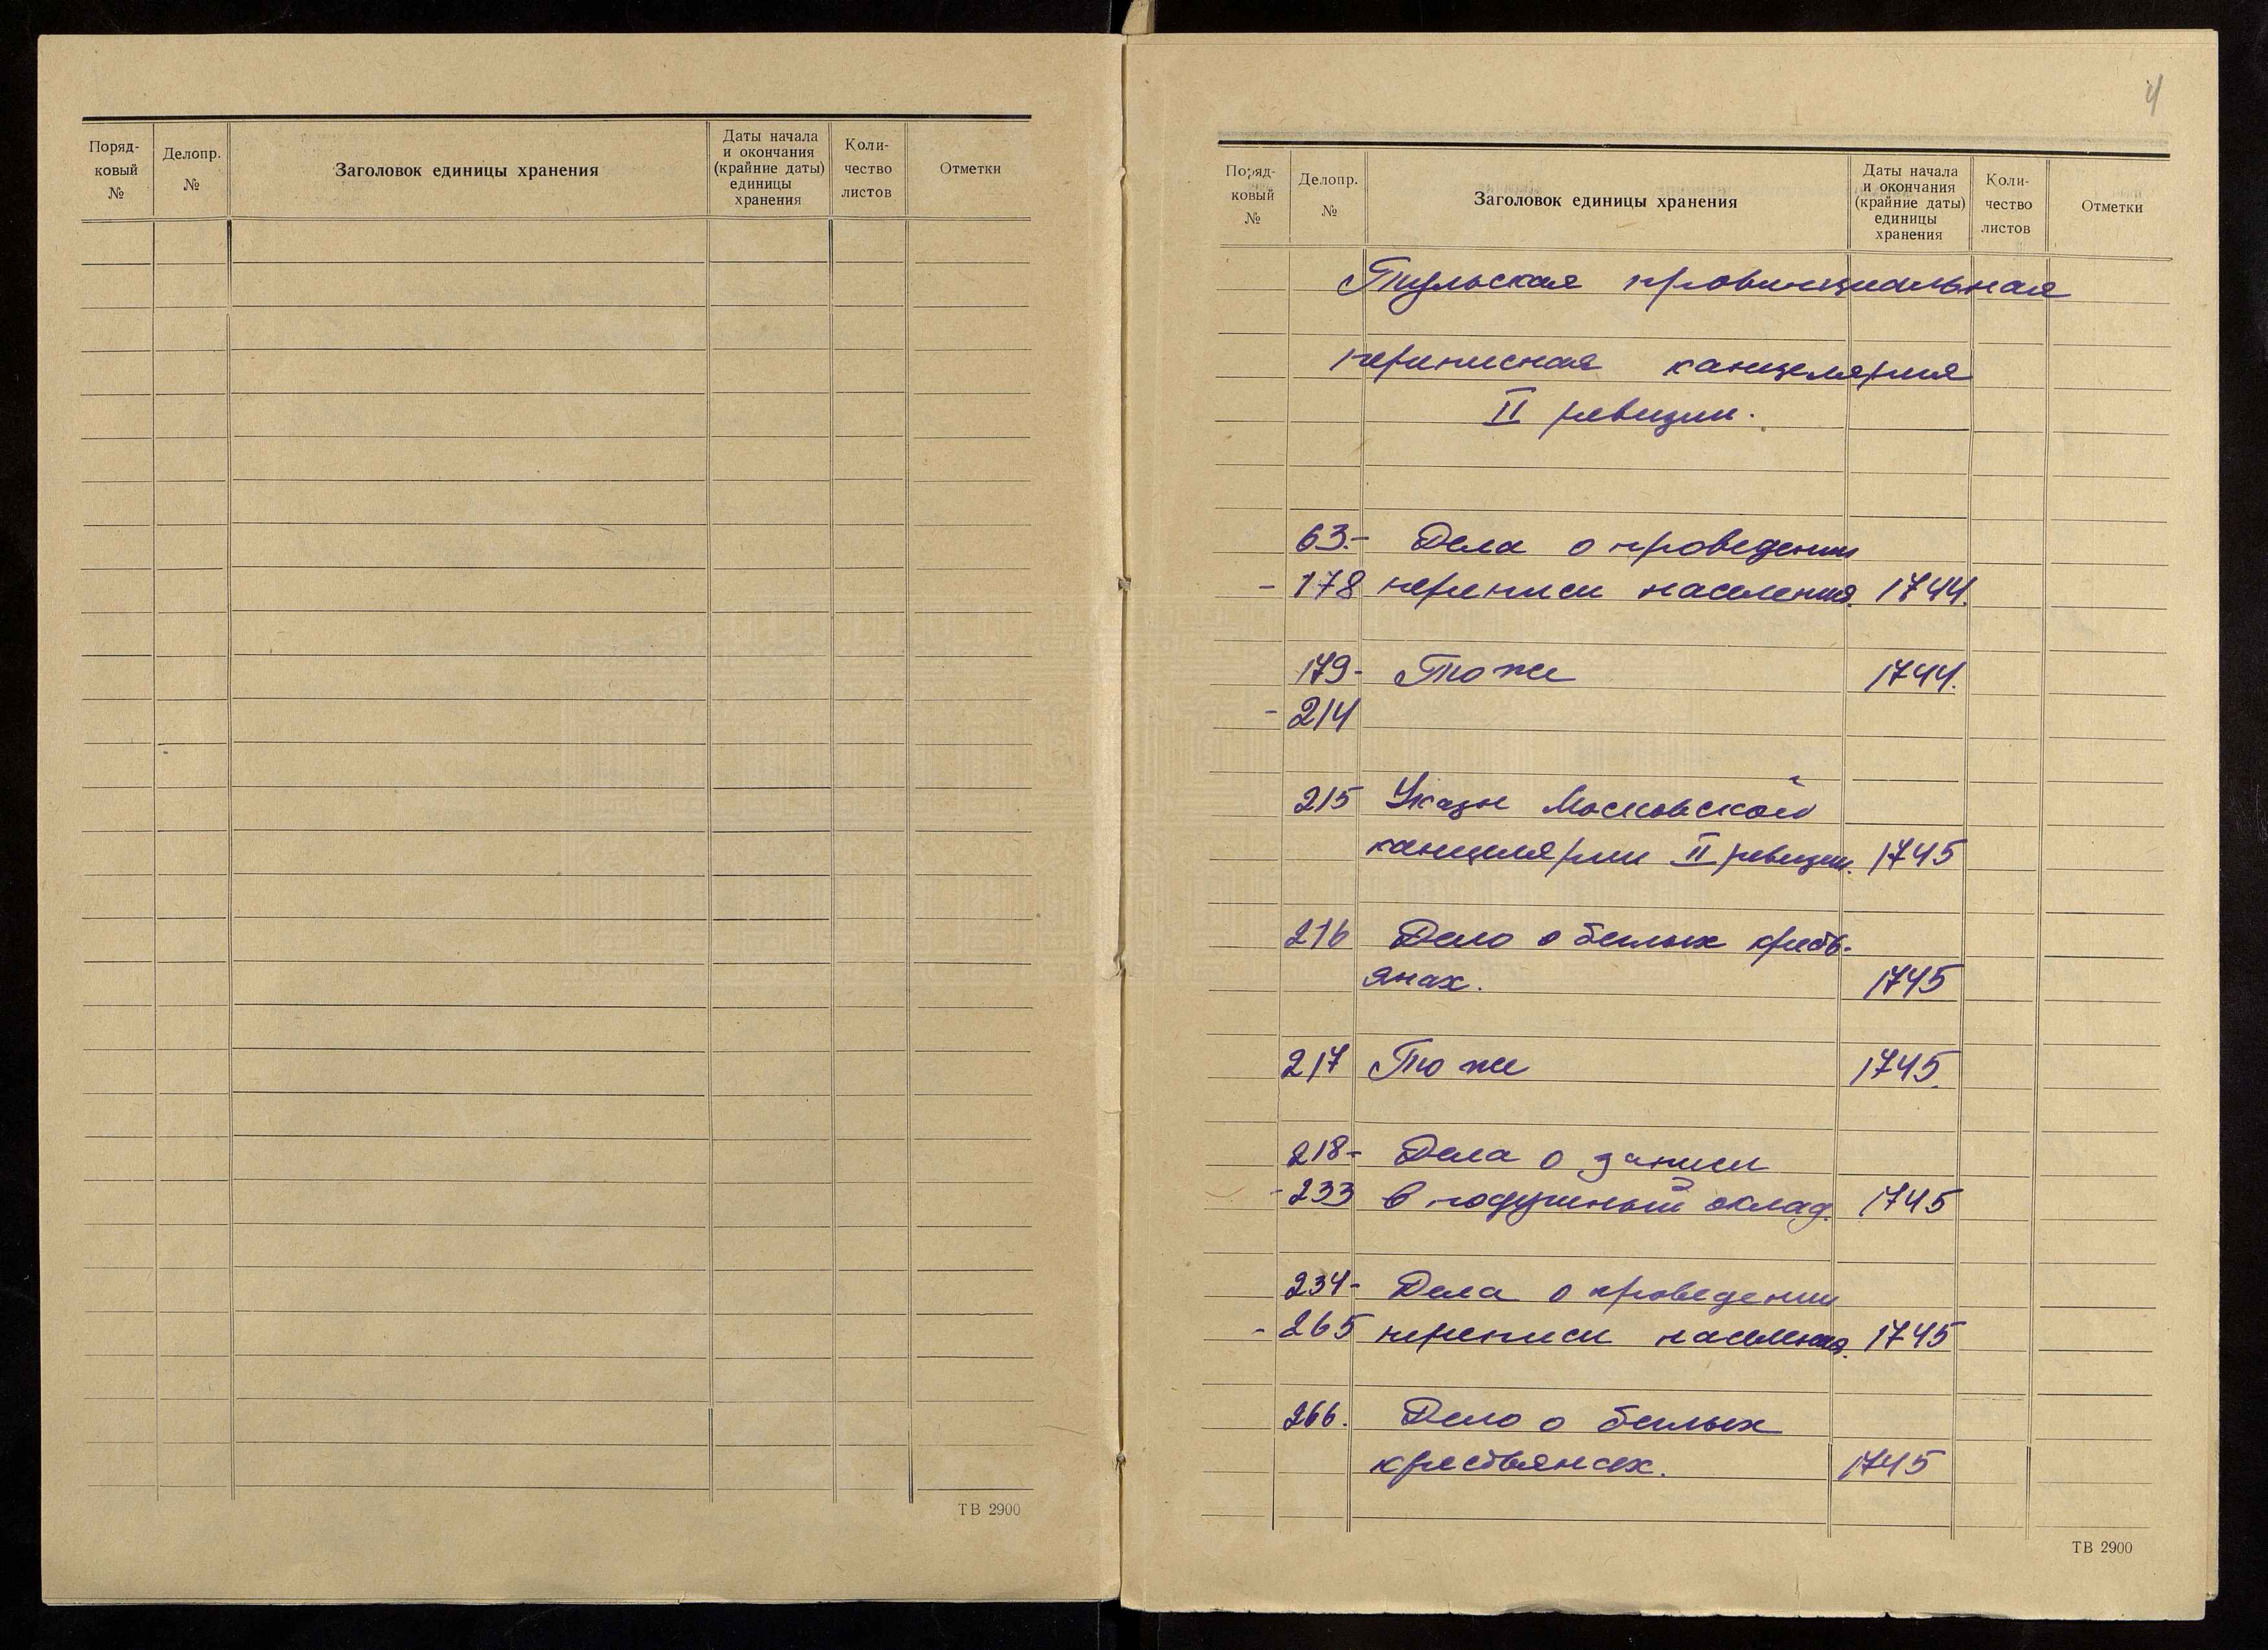 Поряд-
ковый
№
Делопр.
№
Заголовок единицы хранения
Даты начала
и окончания
(крайние даты)
единицы
хранения
Коли-
чество
листов
Отметки
ТВ 2900
4
Поряд-
ковый
№
Делопр.
№
Заголовок единицы хранения
Даты начала
и окончания
(крайние даты)
единицы
хранения
Коли-
чество
листов
Отметки
Тульская провинциальная
переписная канцелярия
II ревизии.
63.- Дела о проведении
- 178 переписи населения. 1744.
179- То же 1744.
- 214
215 Указы Московской
канцелярии II ревизии. 1745
216 Дело о беглых кресть-
янах. 1745
217 То же 1745.
218- Дела о записи
- 233 в подушный оклад. 1745
234- Дела о проведении
- 265 переписи населения. 1745
266. Дело о беглых
крестьянах. 1745
ТВ 2900